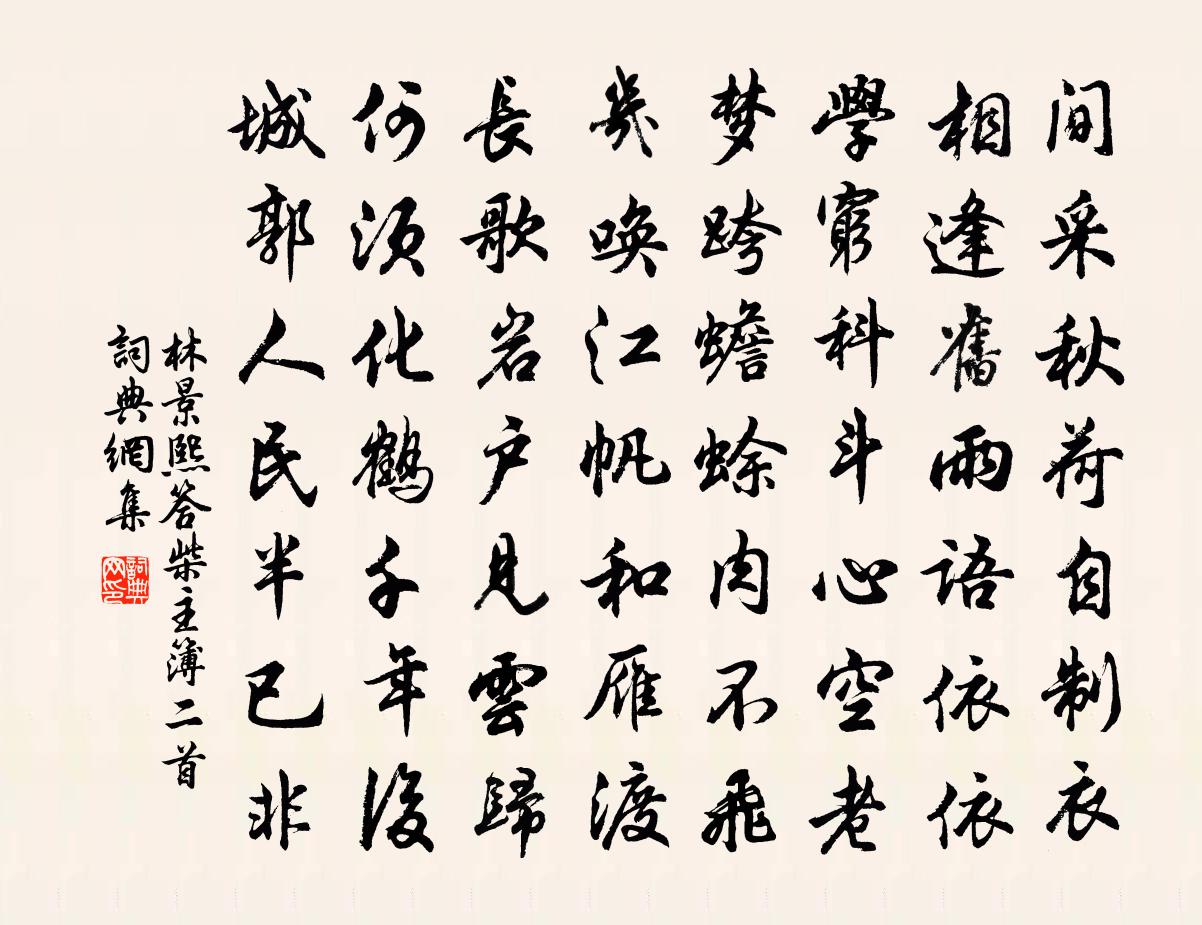 间采秋荷自制衣
相逢舊雨語依依
學窮科斗心空老
梦跨蟾蜍肉不飛
幾唤江帆和雁渡
長歌岩户見雲歸
何须化鹤千年後
城郭人民半已非
林景熙答柴主簿二首
詞典網集
詞典网印